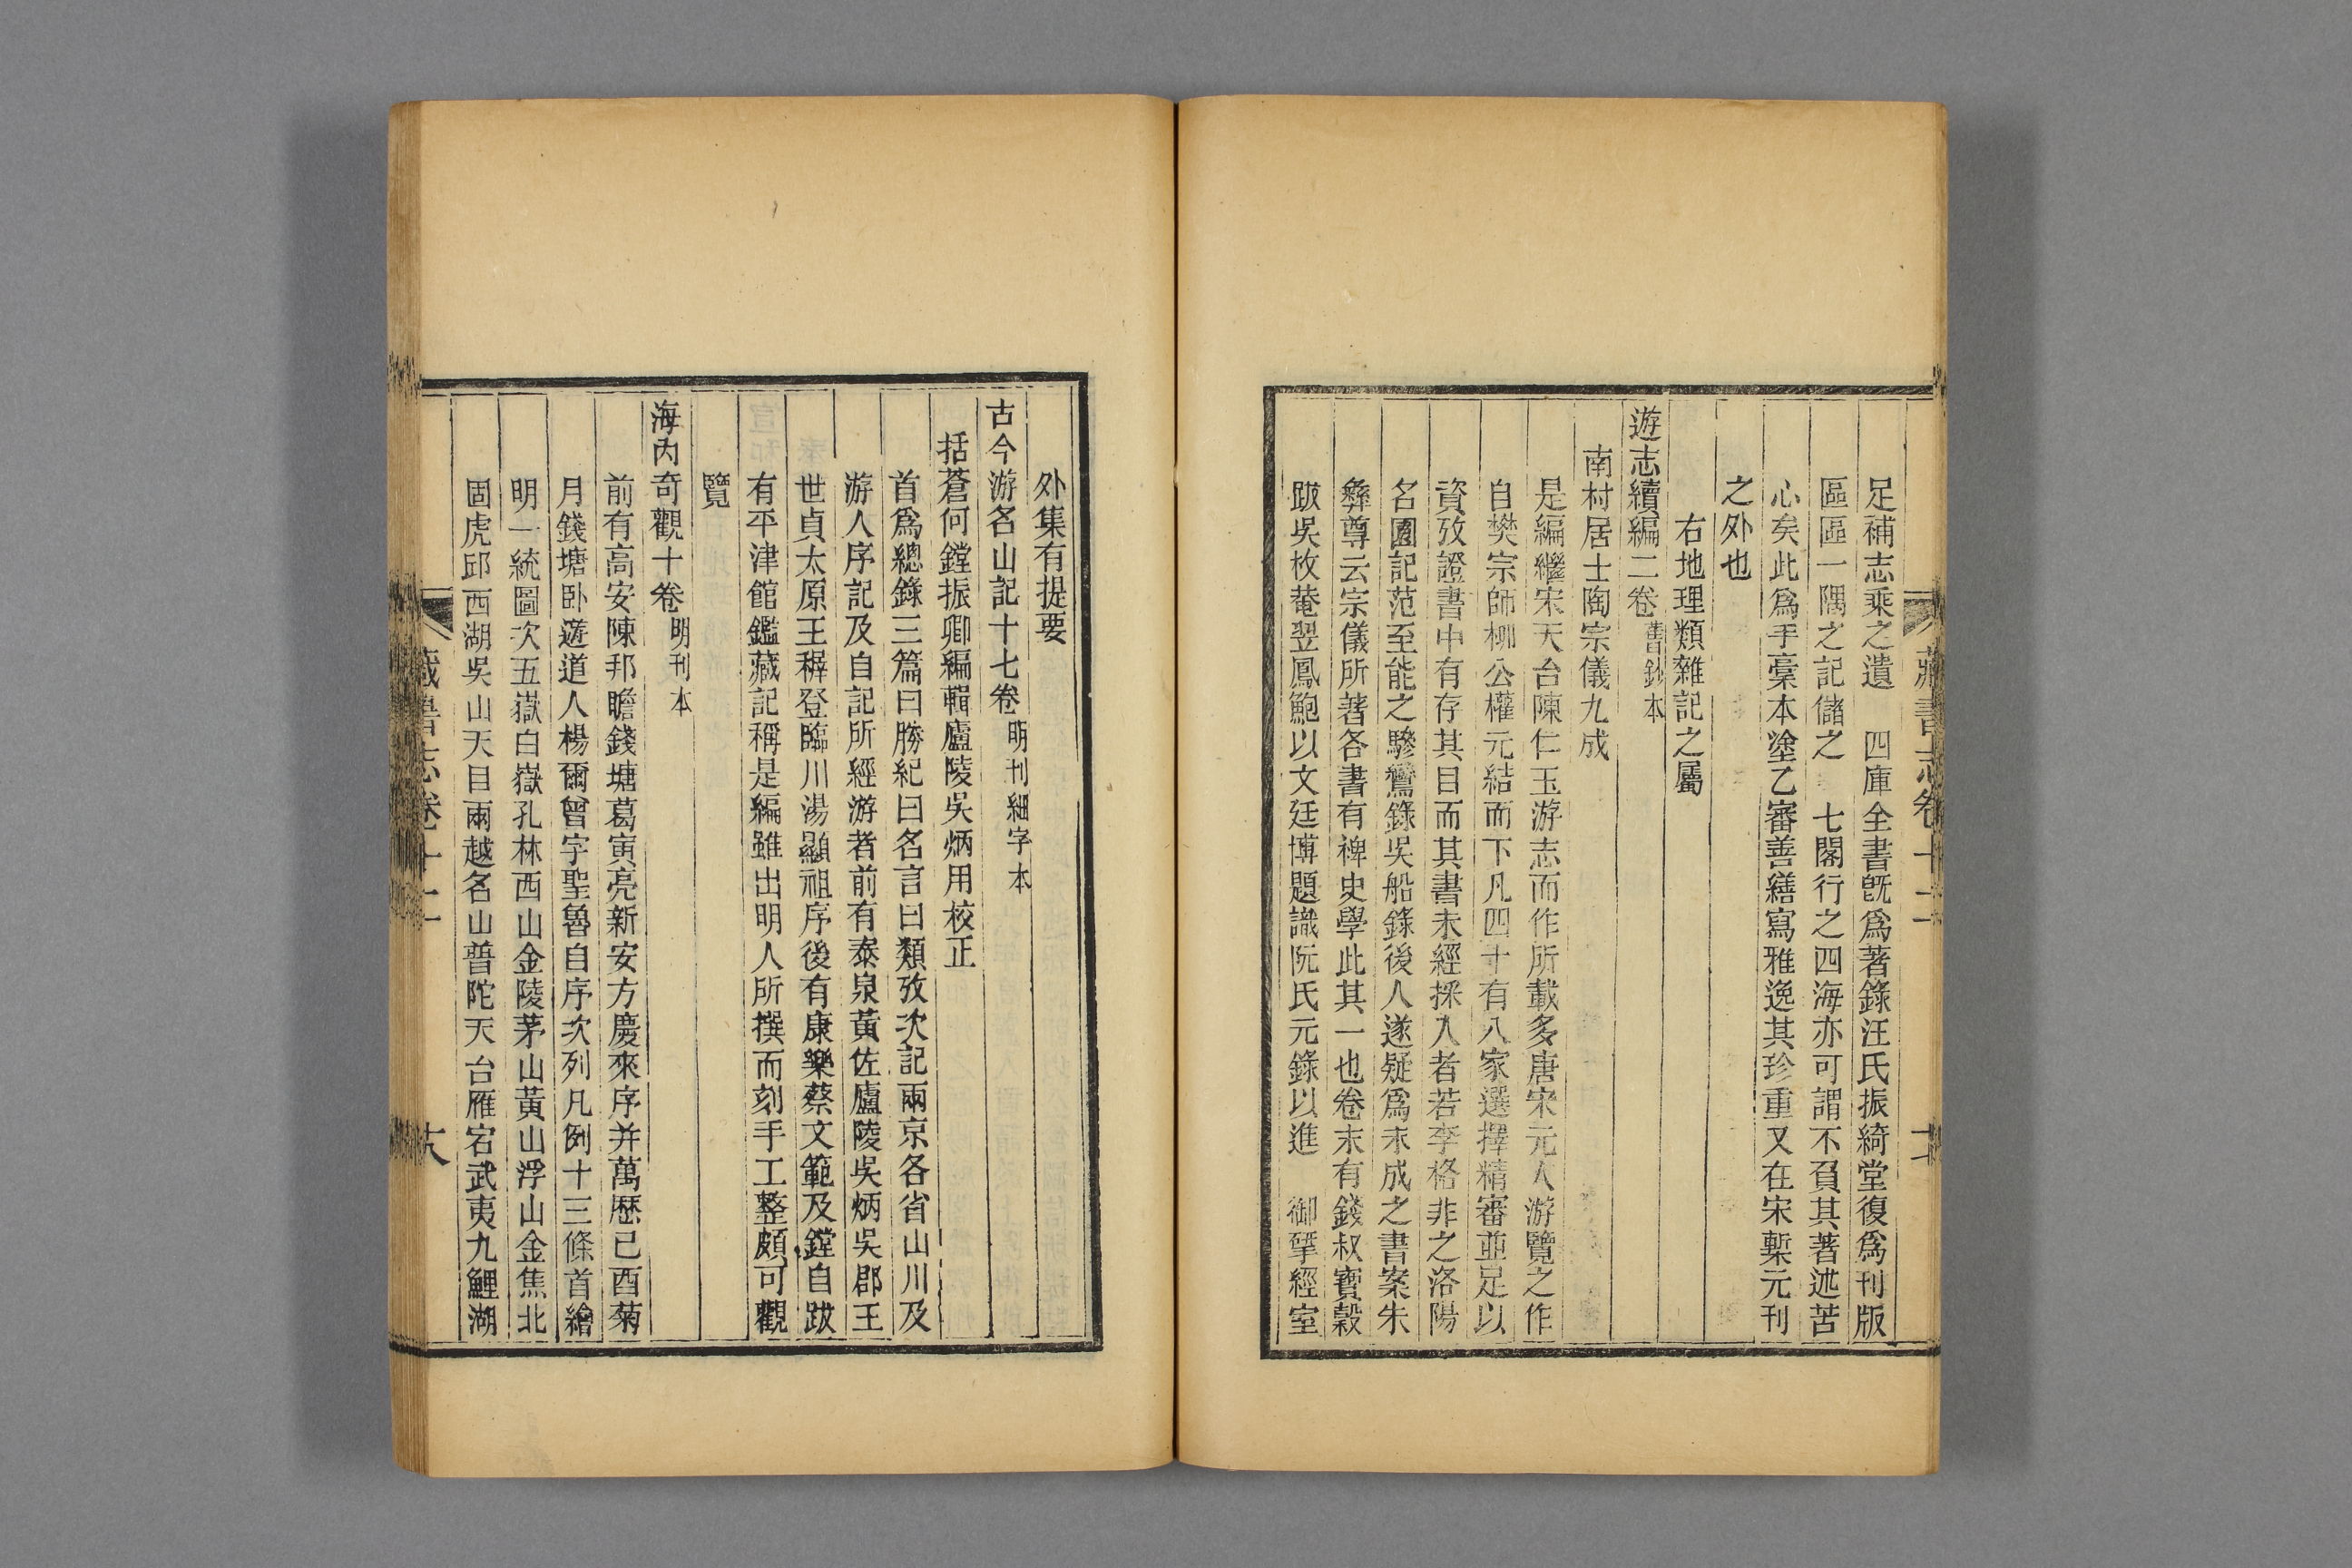 足補志乘之遺　四庫全書既爲著錄汪氏振綺堂復爲刊版
區區一隅之記儲之　七閣行之四海亦可謂不負其著述苦
心矣此爲手稾本塗乙審善繕寫雅逸其珍重又在宋槧元刊
之外也
右地理類雜記之屬
遊志續編二卷舊鈔本
南村居士陶宗儀九成
是編繼宋天台陳仁玉游志而作所載多唐宋元人游覽之作
自樊宗師柳公權元結而下凡四十有八家選擇精審亜足以
資攷證書中有存其目而其書未經採入者若李格非之洛陽
名園記范至能之驂鸞錄吳船錄後人遂疑爲未成之書案朱
彝尊云宗儀所著各書有裨史學此其一也卷末有錢叔寶穀
跋吳枚菴翌鳳鮑以文廷博題識阮氏元錄以進　御揅經室
外集有提要
古今游名山記十七卷明刊細字本
括蒼何鏜振卿編輯廬陵吳炳用校正
首爲總錄三篇曰勝紀曰名言曰類攷次記兩京各省山川及
游人序記及自記所經游者前有泰泉黃佐廬陵吳炳吳郡王
世貞太原王穉登臨川湯顯祖序後有康樂蔡文範及鏜自跋
有平津館鑑藏記稱是編雖出明人所撰而刻手工整頗可觀
覽
海內奇觀十卷明刊本
前有高安陳邦瞻錢塘葛寅亮新安方慶來序并萬歷己酉菊
月錢塘卧遊道人楊爾曾字聖魯自序次列凡例十三條首繪
明一統圖次五嶽白嶽孔林西山金陵茅山黃山浮山金焦北
固虎邱西湖吳山天目兩越名山普陀天台雁宕武夷九鯉湖
藏書志卷十二